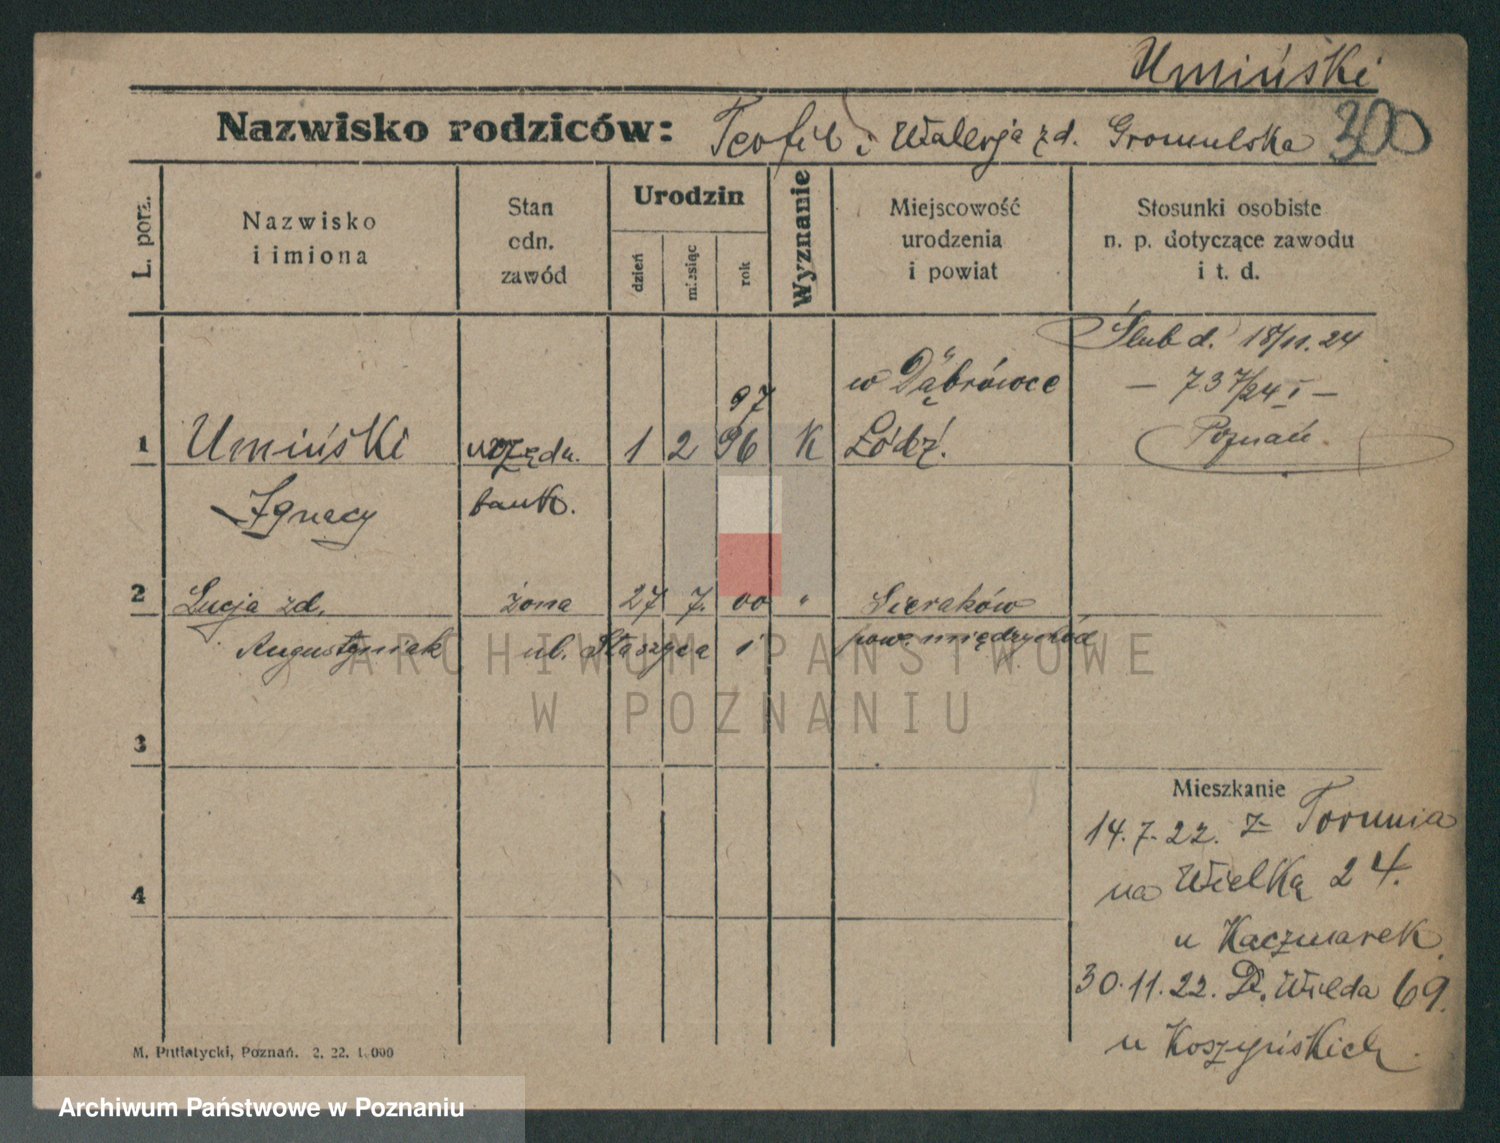 Umiński
Nazwisko rodziców: Teofil i Walerja zd. Gromulska 300
L. porz.
Nazwisko
i imiona
Stan
cdn.
zawód
Urodzin
dzień
miesiąc
rok
Wyznanie
Miejscowość
urodzenia
i powiat
Stosunki osobiste
n. p. dotyczące zawodu
i t. d.
Ślub d. 18/11.24
— 737/24 I —
Poznań.
1 Umiński urzędn. 1 2 96 97 K w Dąbrówce
Łódź.
Ignacy bank.
2 Łucja zd. żona 27 7. 00 " Sieraków
Augustyniak ul. Staszyca 1 pow. międzychód
3
4
Mieszkanie
14.7.22. z Torunia
na Wielką 24.
u Kaczmarek.
30.11.22. D. Wilda 69.
u Koszyńskich.
M. Putiatycki, Poznań. 2. 22. 1.000
ARCHIWUM PAŃSTWOWE
W POZNANIU
Archiwum Państwowe w Poznaniu